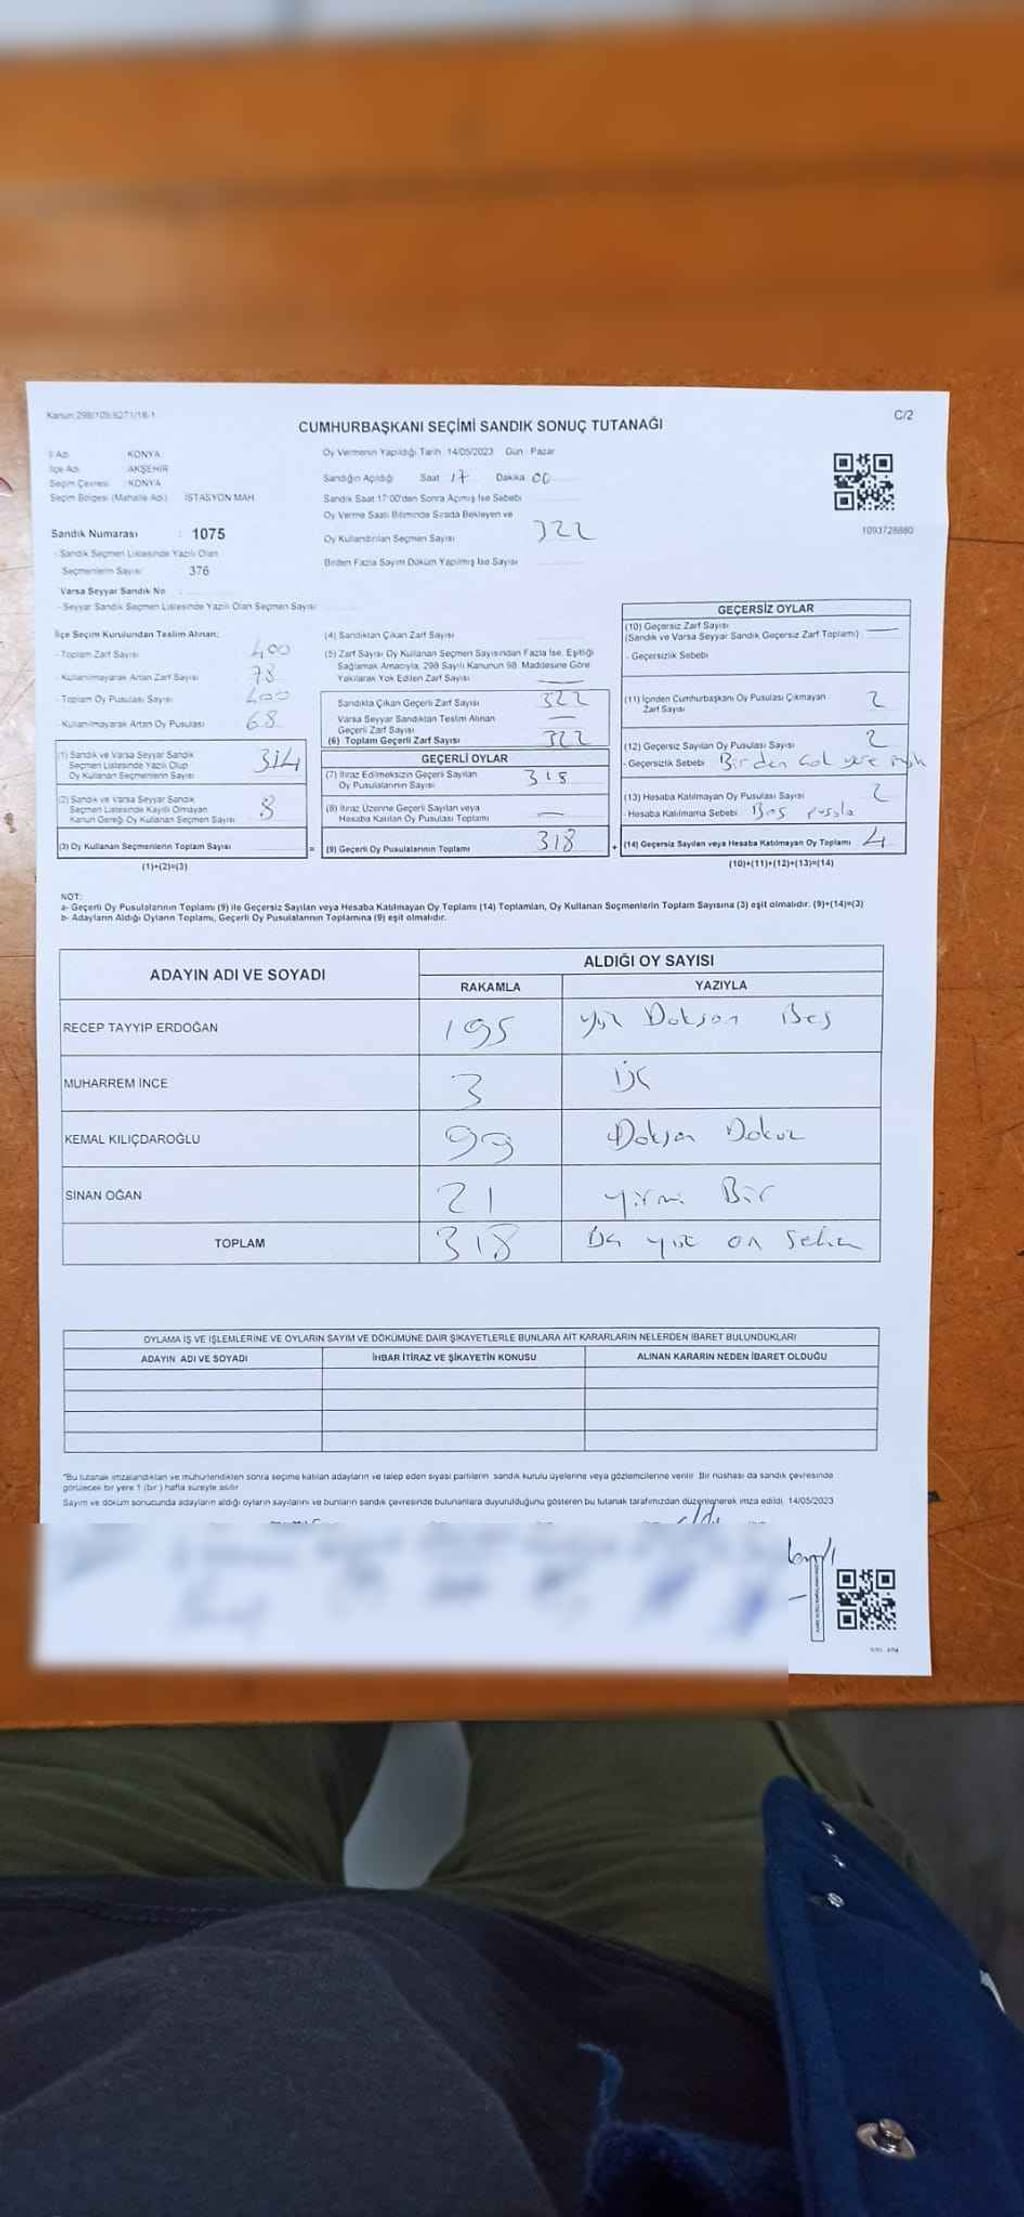 Kanun:298/105/6271/18-1
C/2
CUMHURBAŞKANI SEÇİMİ SANDIK SONUÇ TUTANAĞI
İl Adı KONYA
İlçe Adı AKŞEHİR
Seçim Çevresi KONYA
Seçim Bölgesi (Mahalle Adı) İSTASYON MAH
Sandık Numarası : 1075
- Sandık Seçmen Listesinde Yazılı Olan
Seçmenlerin Sayısı 376
Varsa Seyyar Sandık No
- Seyyar Sandık Seçmen Listesinde Yazılı Olan Seçmen Sayısı
Oy Vermenin Yapıldığı Tarih 14/05/2023 Gün : Pazar
Sandığın Açıldığı Saat 17 Dakika 00
Sandık Saat 17:00'den Sonra Açılmış İse Sebebi
Oy Verme Saati Bitiminde Sırada Bekleyen ve
Oy Kullandırılan Seçmen Sayısı 322
Birden Fazla Sayım Döküm Yapılmış İse Sayısı
1093728880
İlçe Seçim Kurulundan Teslim Alınan;
- Toplam Zarf Sayısı 400
- Kullanılmayarak Artan Zarf Sayısı 78
- Toplam Oy Pusulası Sayısı 400
- Kullanılmayarak Artan Oy Pusulası 68
(1) Sandık ve Varsa Seyyar Sandık
Seçmen Listesinde Yazılı Olup
Oy Kullanan Seçmenlerin Sayısı 314
(2) Sandık ve Varsa Seyyar Sandık
Seçmen Listesinde Kayıtlı Olmayan
Kanun Gereği Oy Kullanan Seçmen Sayısı 8
(3) Oy Kullanan Seçmenlerin Toplam Sayısı =
(1)+(2)=(3)
(4) Sandıktan Çıkan Zarf Sayısı
(5) Zarf Sayısı Oy Kullanan Seçmen Sayısından Fazla İse, Eşitliği
Sağlamak Amacıyla, 298 Sayılı Kanunun 98. Maddesine Göre
Yakılarak Yok Edilen Zarf Sayısı —
Sandıkta Çıkan Geçerli Zarf Sayısı 322
Varsa Seyyar Sandıktan Teslim Alınan
Geçerli Zarf Sayısı —
(6) Toplam Geçerli Zarf Sayısı 322
GEÇERLİ OYLAR
(7) İtiraz Edilmeksizin Geçerli Sayılan
Oy Pusulalarının Sayısı 318
(8) İtiraz Üzerine Geçerli Sayılan veya
Hesaba Katılan Oy Pusulası Toplamı —
(9) Geçerli Oy Pusulalarının Toplamı 318 +
GEÇERSİZ OYLAR
(10) Geçersiz Zarf Sayısı
(Sandık ve Varsa Seyyar Sandık Geçersiz Zarf Toplamı) —
- Geçersizlik Sebebi
(11) İçinden Cumhurbaşkanı Oy Pusulası Çıkmayan
Zarf Sayısı 2
(12) Geçersiz Sayılan Oy Pusulası Sayısı 2
- Geçersizlik Sebebi Birden
(13) Hesaba Katılmayan Oy Pusulası Sayısı 2
- Hesaba Katılmama Sebebi Boş pusula
(14) Geçersiz Sayılan veya Hesaba Katılmayan Oy Toplamı 4
(10)+(11)+(12)+(13)=(14)
NOT:
a- Geçerli Oy Pusulalarının Toplamı (9) ile Geçersiz Sayılan veya Hesaba Katılmayan Oy Toplamı (14) Toplamları, Oy Kullanan Seçmenlerin Toplam Sayısına (3) eşit olmalıdır. (9)+(14)=(3)
b- Adayların Aldığı Oyların Toplamı, Geçerli Oy Pusulalarının Toplamına (9) eşit olmalıdır.
ADAYIN ADI VE SOYADI
ALDIĞI OY SAYISI
RAKAMLA YAZIYLA
RECEP TAYYİP ERDOĞAN 195 Yüz Doksan Beş
MUHARREM İNCE 3 Üç
KEMAL KILIÇDAROĞLU 99 Doksan Dokuz
SİNAN OĞAN 21 yirmi Bir
TOPLAM 318 yüz on
OYLAMA İŞ VE İŞLEMLERİNE VE OYLARIN SAYIM VE DÖKÜMÜNE DAİR ŞİKAYETLERLE BUNLARA AİT KARARLARIN NELERDEN İBARET BULUNDUKLARI
ADAYIN ADI VE SOYADI İHBAR İTİRAZ VE ŞİKAYETİN KONUSU ALINAN KARARIN NEDEN İBARET OLDUĞU
"Bu tutanak imzalandıktan ve mühürlendikten sonra seçime katılan adayların ve talep eden siyasi partilerin sandık kurulu üyelerine veya gözlemcilerine verilir. Bir nüshası da sandık çevresinde
görülecek bir yere 1 (bir) hafta süreyle asılır
Sayım ve döküm sonucunda adayların aldığı oyların sayılarını ve bunların sandık çevresinde bulunanlara duyurulduğunu gösteren bu tutanak tarafımızdan düzenlenerek imza edildi. 14/05/2023